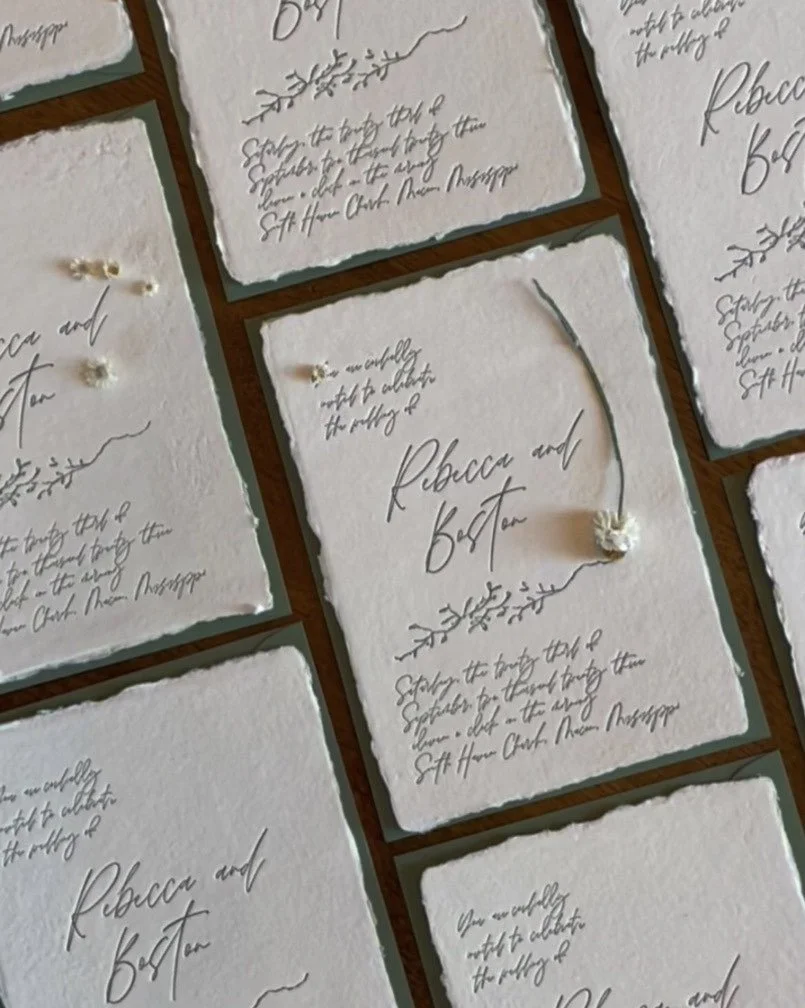 Mississippi
Boston
Saturday, the twenty third of
September, two thousand twenty three
eleven o clock in the morning
South Haven Church, Macon, Mississippi
invited to celebrate
the wedding of
Saturday, the
September, two
eleven o clock
South Haven
and
the twenty third of
two thousand twenty three
clock in the morning
Haven Church, Macon, Mississippi
You are cordially
invited to celebrate
the wedding of
Rebecca and
Boston
Saturday, the twenty third of
September, two thousand twenty three
eleven o clock in the morning
South Haven Church, Macon, Mississippi
You are cordially
invited to celebrate
the wedding of
Rebecca and
Boston
You are cordially
invited to celebrate
the wedding of
Rebecca and